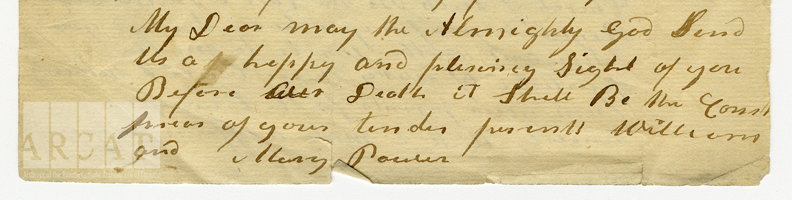 My Dear may the Almighty God Send
Us a happy and plesing Sight of you
Before our Death it Shall Be the Const
prear of your tender parents William
and Mary Power
ARCA